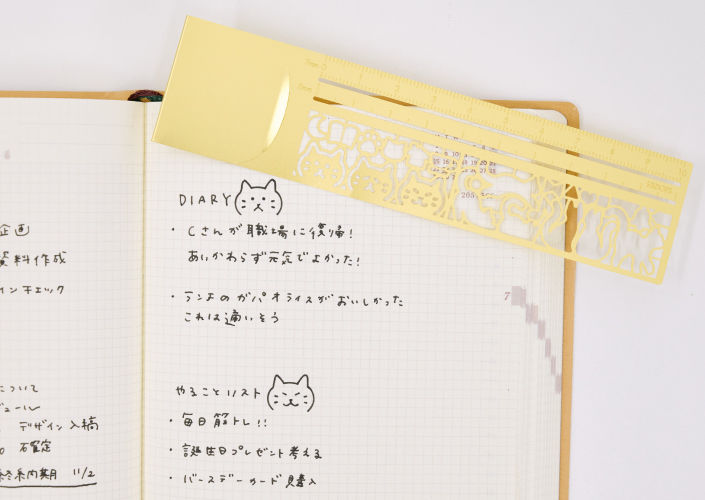 企画
資料作成
インチェック
について
デザイン入稿
終案内期 11/2
DIARY
・Cさんが職場に復帰!
あいかわらず元気でよかった!
・ランチのガパオライスがおいしかった
これは通いそう
7
やることリスト
・毎日筋トレ!!
・誕生日プレゼント考える
・バースデーカード購入